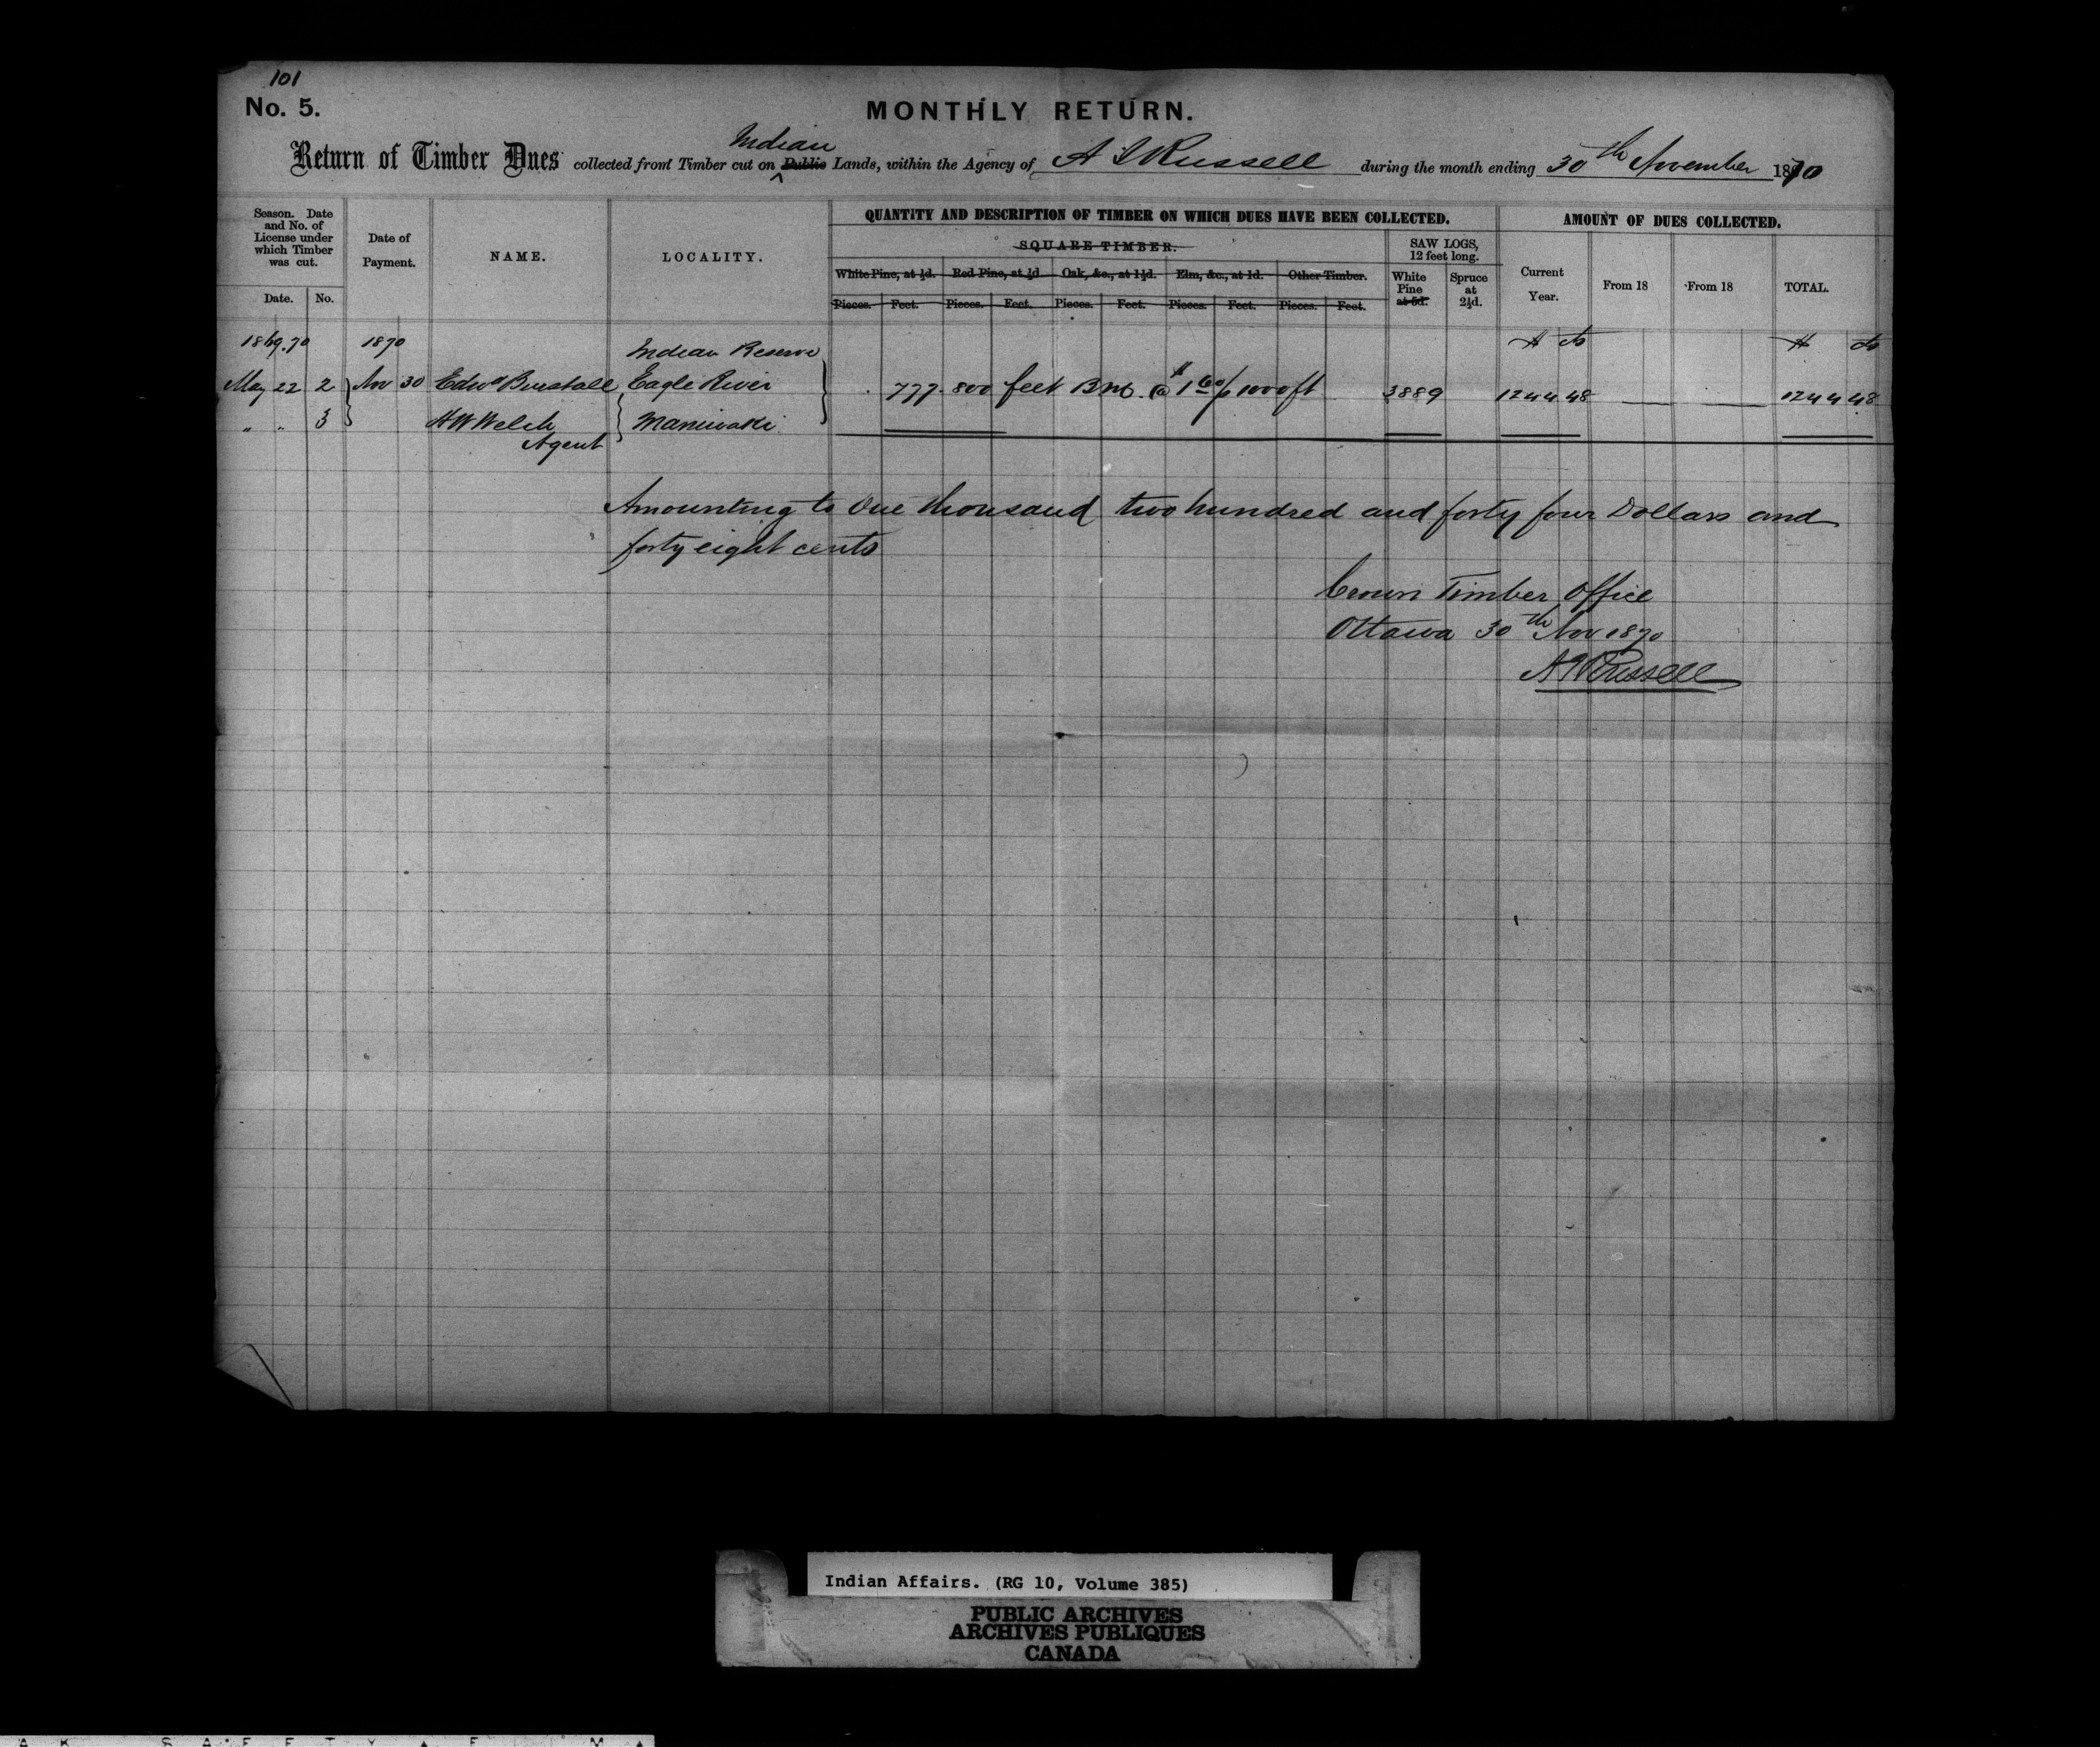 101
No. 5.
MONTHLY RETURN.
Indian
Return of Timber Dues collected from Timber cut on Public Lands, within the Agency of A J Russell during the month ending 30th November 1870
Season. Date and No. of License under which Timber was cut.
Date. No.
Date of Payment.
NAME.
LOCALITY.
QUANTITY AND DESCRIPTION OF TIMBER ON WHICH DUES HAVE BEEN COLLECTED.
SQUARE TIMBER.
White Pine, at ½d. Red Pine, at ½d Oak, &c., at 1½d. Elm, &c., at 1d. Other Timber.
Pieces. Feet. Pieces. Feet. Pieces. Feet. Pieces. Feet. Pieces. Feet.
SAW LOGS, 12 feet long.
White Pine at 5d. Spruce at 2½d.
AMOUNT OF DUES COLLECTED.
Current Year. From 18 From 18 TOTAL.
1869.70 1870 Indian Reserve $ cts $ cts
May 22 2 Nov 30 Edwd Burstall Eagle River 777.800 feet Bm. @ $1 60/ p 1000 ft 3889 1244 48 1244 48
" " 3 H W Welch Maniwaki
Agent
Amounting to One thousand two hundred and forty four Dollars and
forty eight cents
Crown Timber Office
Ottawa 30th Nov 1870
A J Russell
Indian Affairs. (RG 10, Volume 385)
PUBLIC ARCHIVES
ARCHIVES PUBLIQUES
CANADA